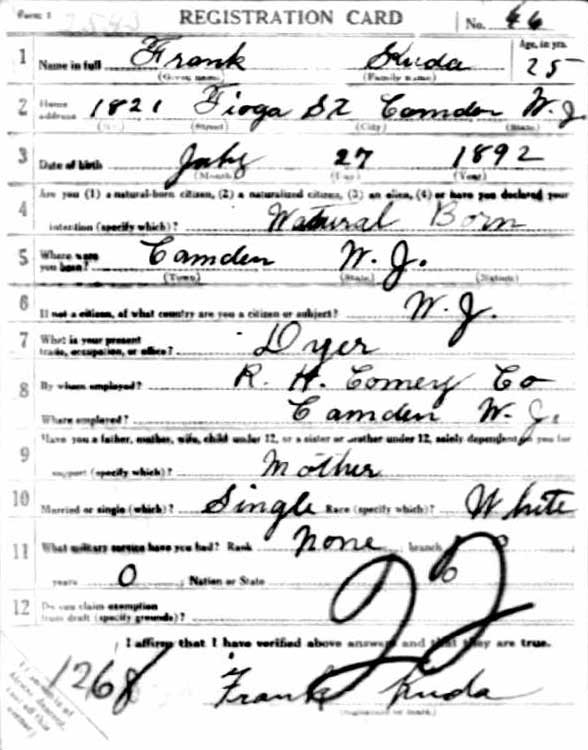 Form 1 2593 REGISTRATION CARD No. 46
1 Name in full Frank Kuda Age, in yrs. 25
(Given name) (Family name)
2 Home address 1821 Tioga St Camden N. J.
(No.) (Street) (City) (State)
3 Date of birth July 27 1892
(Month) (Day) (Year)
4 Are you (1) a natural-born citizen, (2) a naturalized citizen, (3) an alien, (4) or have you declared your
intention (specify which)? Natural Born
5 Where were you born? Camden N. J.
(Town) (State) (Nation)
6 If not a citizen, of what country are you a citizen or subject? N. J.
7 What is your present trade, occupation, or office? Dyer
8 By whom employed? R. H. Comey Co
Where employed? Camden N. J.
9 Have you a father, mother, wife, child under 12, or a sister or brother under 12, solely dependent on you for
support (specify which)? Mother
10 Married or single (which)? Single Race (specify which)? White
11 What military service have you had? Rank none branch
years 0 ; Nation or State
12 Do you claim exemption from draft (specify grounds)?
22
I affirm that I have verified above answers and that they are true.
1268 Frank Kuda
(Signature or mark)